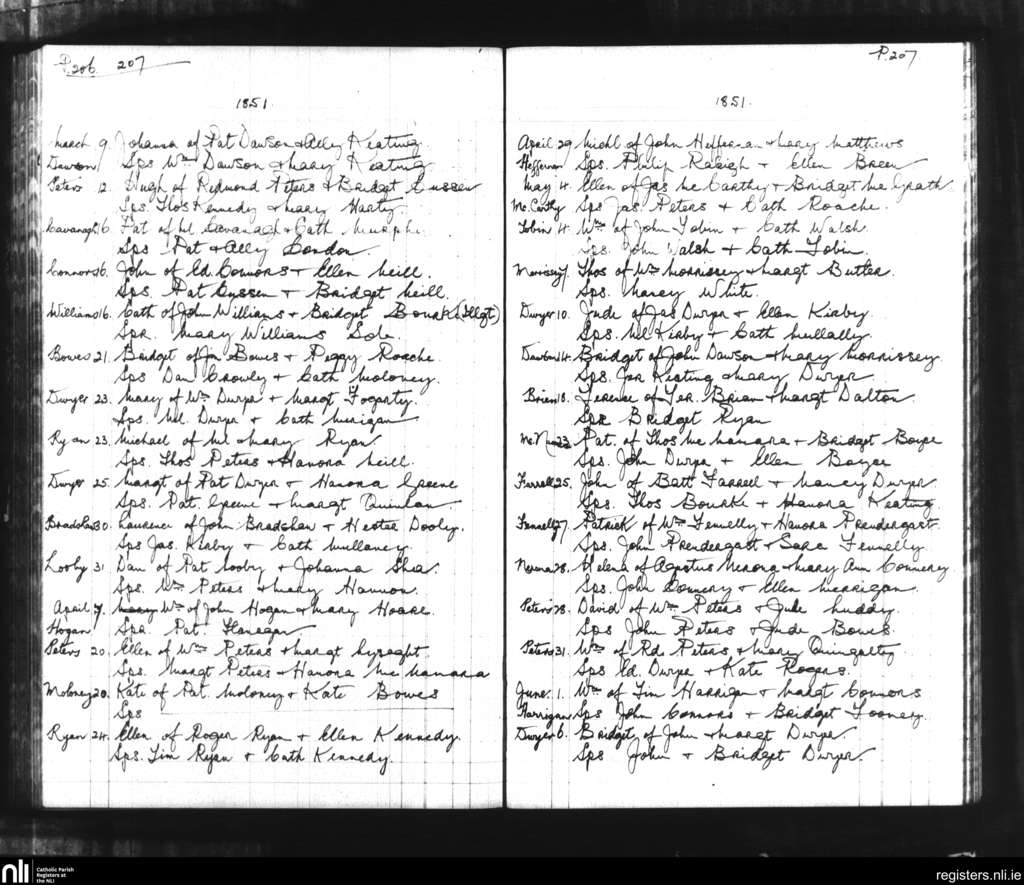 P.206. 207
1851.
March 9. Johanna of Pat Dawson & Ally Keating.
Dawson Sps Wm Dawson & Mary Keating
Peters 12. Hugh of Redmond Peters & Bridget Cussen
Sps. Thos Kennedy & Mary Harty.
Cavanagh 16. Pat of Ml. Cavanagh & Cath Murphy.
Sps Pat & Ally Condon.
Connors 16. John of Ed Connors & Ellen Neill.
Sps. Pat Cussen & Bridget Neill.
Williams 16. Cath of John Williams & Bridget Bourke (Illgt)
Spr. Mary Williams Sole.
Bowes 21. Bridget of Jn Bowes & Peggy Roache
Sps Dan Crowley & Cath Moloney.
Dwyer 23. Mary of Wm Dwyer & Margt Fogarty.
Sps. Ml. Dwyer & Cath
Ryan 23. Michael of Ml & Mary Ryan.
Sps. Thos Peters & Hanora Neill.
Dwyer 25. Margt of Pat Dwyer & Hanora Greene
Sps. Pat. Greene & Margt Quinlan.
Bradshaw 30. Laurence of John Bradshaw & Hester Dooly.
Sps Jas. Kirby & Cath Mullaney
Looby 31 Dan of Pat Looby & Johanna Shea.
Sps. Wm Peters & Mary Hannon.
April 7. Mary Wm of John Hogan & Mary Hoare.
Hogan Spr. Pat. Flanagan
Peters 20. Ellen of Wm Peters & Margt
Sps. Margt Peters & Hanora Mc Namara
Moloney 20. Kate of Pat Moloney & Kate Bowes
Sps
Ryan 24. Ellen of Roger Ryan & Ellen Kennedy.
Sps. Tim Ryan & Cath Kennedy.
P.207
1851.
April 29. Michl of John Heffernan & Mary Matthews
Heffernan Sps. Philip Raleigh & Ellen Breen
May 4. Ellen of Jas Mc Carthy & Bridget Mc Grath.
Mc.Carthy Sps Jas. Peters & Cath Roache.
Tobin 4. Wm of John Tobin & Cath Walsh.
Sps. John Walsh & Cath Tobin.
Morrissey 7. Thos of Wm Morrissey & Margt Butler.
Sps. Mary White.
Dwyer 10. Jude of Jas Dwyer & Ellen Kirby.
Sps. Ml Kirby & Cath Mullally.
Dawson 14. Bridget of John Dawson & Mary Morrissey.
Sps. Jas Keating & Mary Dwyer
Brien 18. Terence of Ter. Brian & Margt Dalton
Spr Bridget Ryan
23 Pat. of Thos Mc Namara & Bridget Boyce
Sps. John Dwyer & Ellen Boyce
Farrell 25. John of Batt Farrell & Nancy Dwyer.
Sps. Thos Bourke & Hanora Keating.
Fennelly 27. Patrick of Wm Fennelly & Hanora Prendergast.
Sps. John Prendergast & Sara Fennelly.
28. Helena of & Mary Ann Connery.
Sps. John Connery & Ellen Merrigan.
Peters 28. David of Wm Peters & Jude Muddy.
Sps John Peters & Jude Bowes.
Peters 31. Wm of Rd. Peters & Mary
Sps Ed. Dwyer & Kate Rogers.
June. 1. Wm of Tim Harrigan & Margt Connors
Harrigan Sps John Connors & Bridget Looney.
Dwyer 6. Bridget of John & Margt Dwyer.
Sps John & Bridget Dwyer.
nli
Catholic Parish
Registers at
the NLI
registers.nli.ie